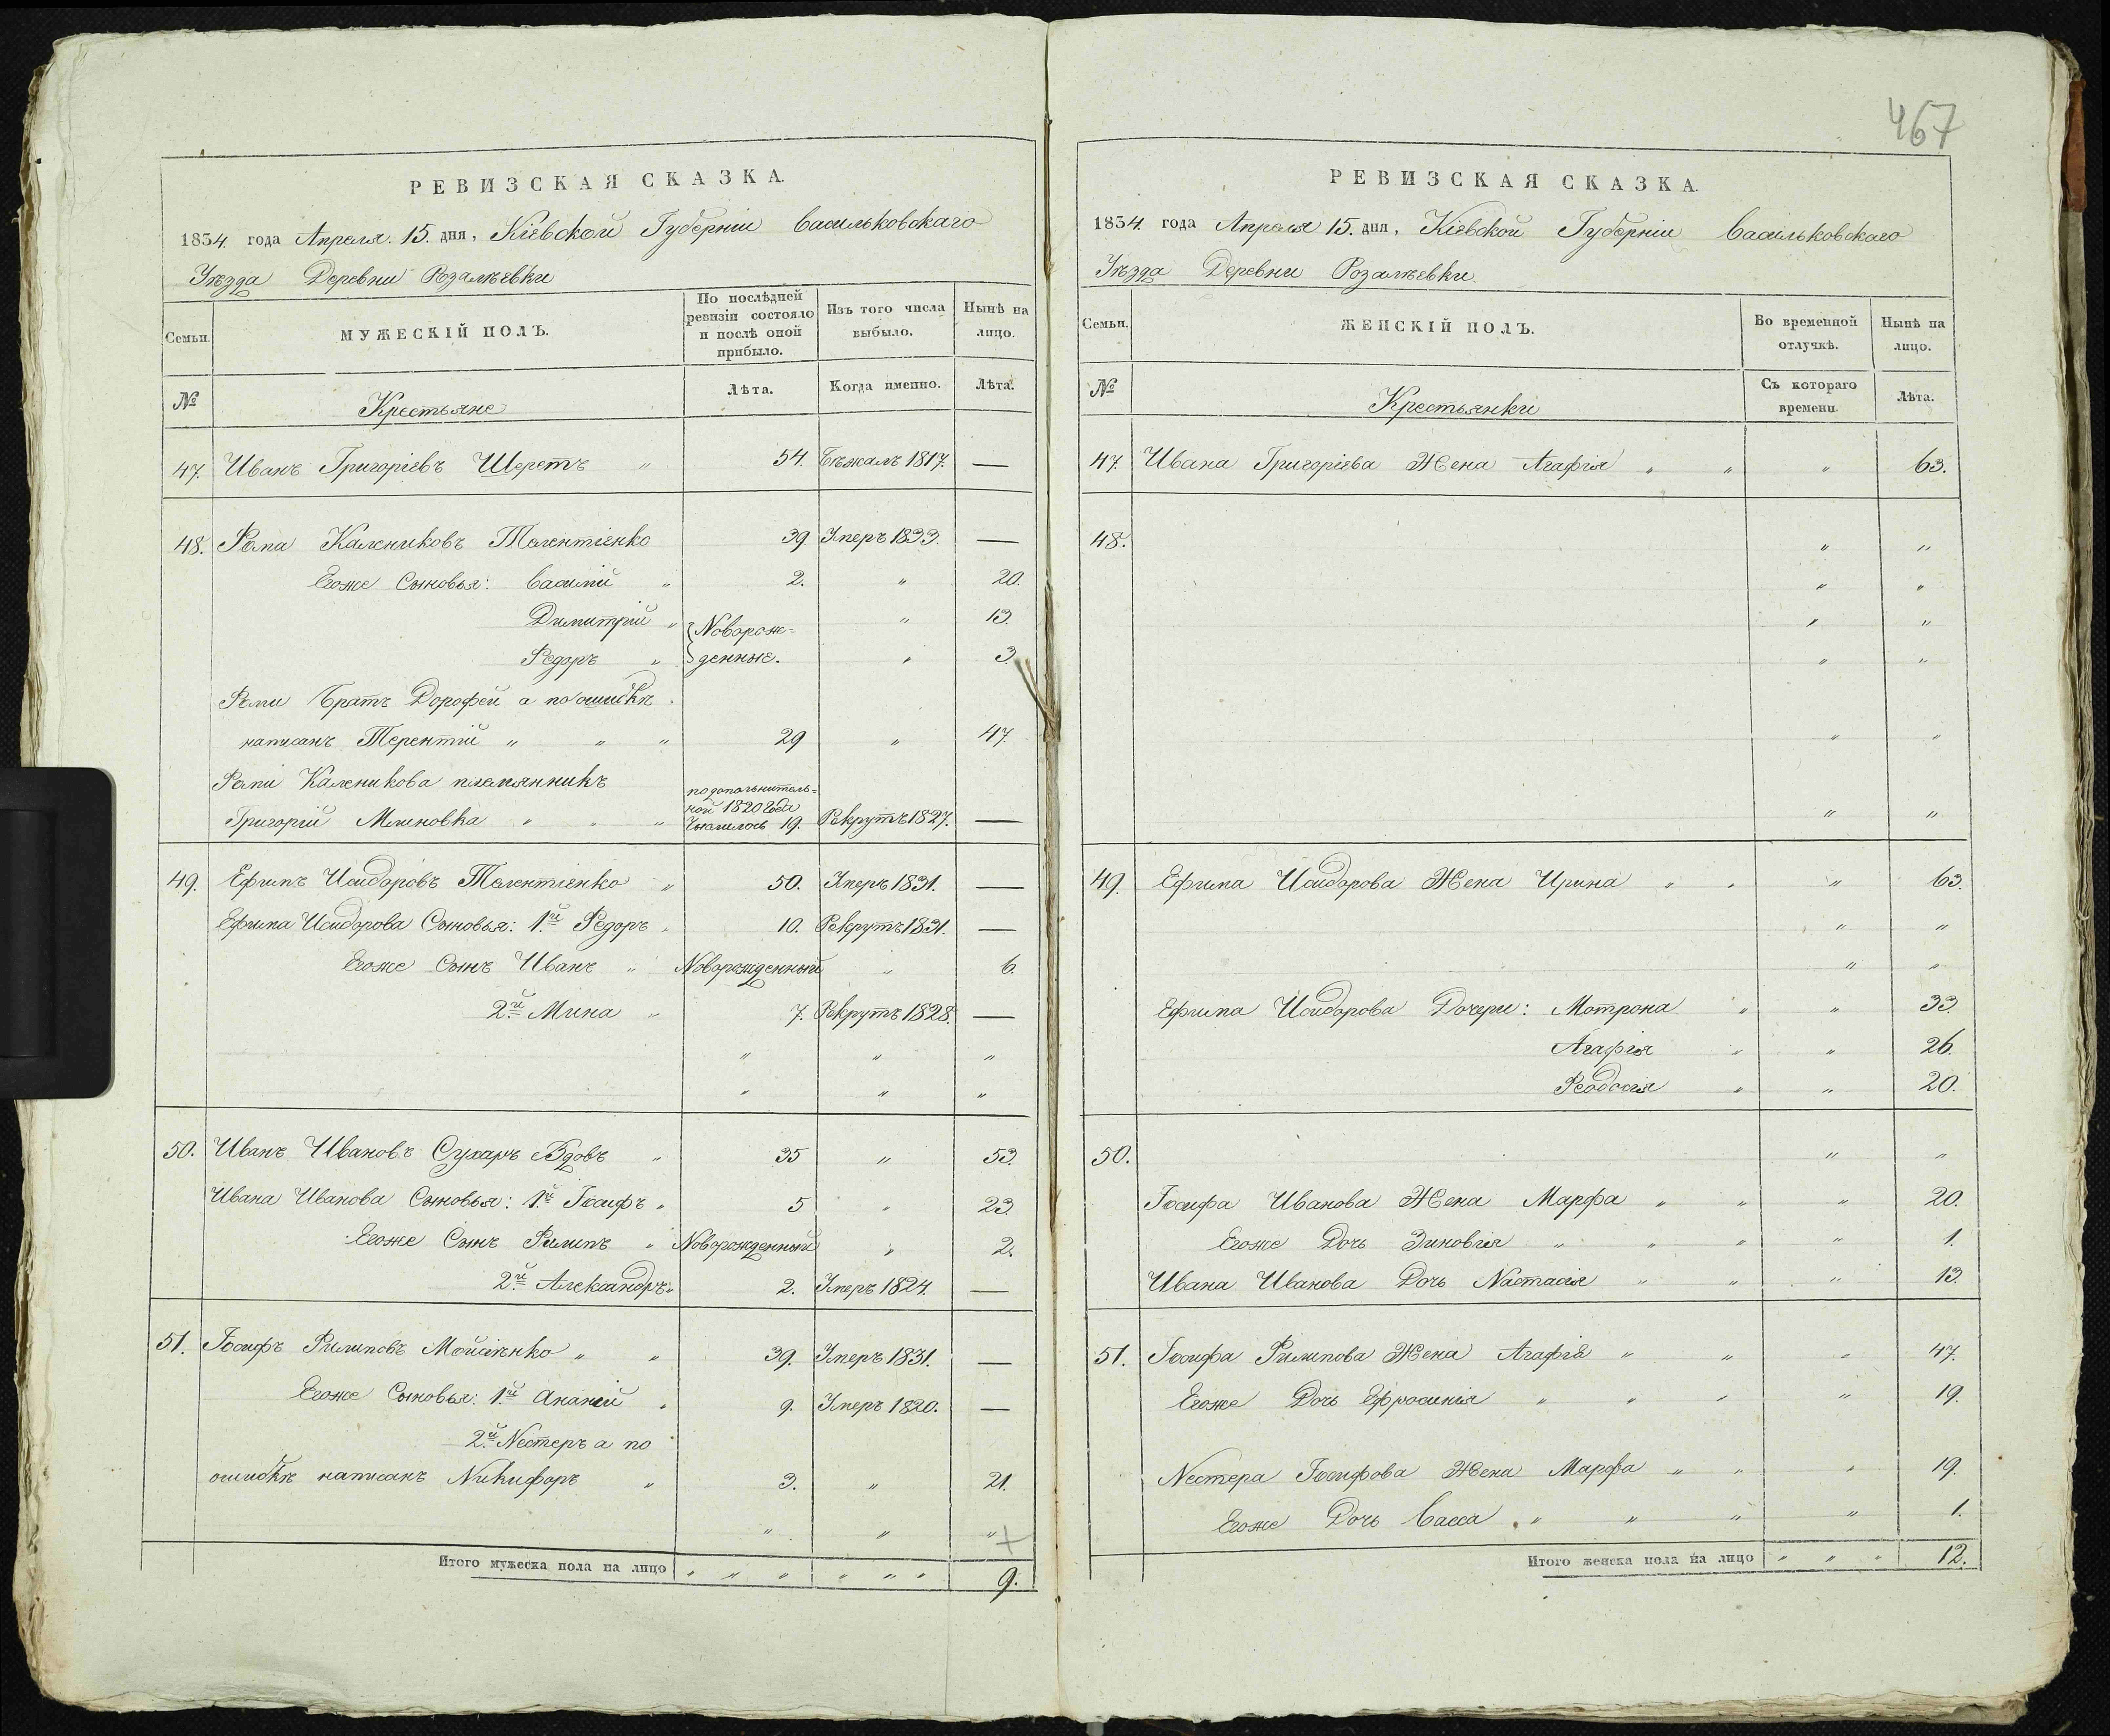 467
РЕВИЗСКАЯ СКАЗКА.
1834. года Апреля. 15. дня, Кіевской Губерніи Васильковскаго
Уѣзда Деревни Розалѣевки
Семьи.
МУЖЕСКІЙ ПОЛЪ.
По послѣдней ревизіи состояло и послѣ оной прибыло.
Изъ того числа выбыло.
Нынѣ на лицо.
№
Крестьяне
Лѣта.
Когда именно.
Лѣта.
47. Иванъ Григоріевъ Шеретъ " 54. Бѣжалъ 1817. —
48. Ѳома Калениковъ 39. Умеръ 1833. —
Егоже Сыновья: Василій " 2. " 20.
Димитрій " Новорож= " 13.
Ѳедоръ " денные. " 3.
Ѳомы Братъ Дорофей а по ошибкѣ
написанъ Терентій " " " 29 " 47.
Каленикова племянникъ
подополнитель=
ной 1820 года
Григорій Млиновка " " " числилось 19. Рекрутъ 1827. —
49. Ефимъ Исидоровъ " 50. Умеръ 1831. —
Ефима Исидорова Сыновья: 1й Ѳедоръ " 10. Рекрутъ 1831. —
Егоже Сынъ Иванъ " Новорожденный " 6.
2й Мина " 7. Рекрутъ 1828. —
" " "
" " "
50. Иванъ Ивановъ Сухаръ Вдовъ " 35 " 53.
Ивана Иванова Сыновья: 1й Іосифъ " 5 " 23.
Егоже Сынъ Филипъ " Новорожденный " 2.
2й Александръ " 2. Умеръ 1824. —
51. Іосифъ Филиповъ Мойсіенко " " 39. Умеръ 1831. —
Егоже Сыновья: 1й Ананій " 9. Умеръ 1820. —
2й Нестеръ а по
ошибкѣ написанъ Никифоръ " 3. " 21.
" " "
Итого мужеска пола на лицо " " " " " " 9.
РЕВИЗСКАЯ СКАЗКА.
1834. года Апреля 15. дня, Кіевской Губерніи Васильковскаго
Уѣзда Деревни Розалѣевки.
Семьи.
ЖЕНСКІЙ ПОЛЪ.
Во временной отлучкѣ.
Нынѣ на лицо.
№
Крестьянки
Съ котораго времени.
Лѣта.
47. Ивана Григоріева Жена Агафія " " " 63.
48. " "
" "
" "
" "
" "
" "
49. Ефима Исидорова Жена Ирина " " " 63.
" "
" "
Ефима Исидорова Дочери: Мотрона " " 33.
Агафія " " 26.
Ѳеодосія " " 20.
50. " "
Іосифа Иванова Жена Марфа " " " 20.
Егоже Дочь Зиновія " " " " 1.
Ивана Иванова Дочь Настасія " " " 13.
51. Іосифа Филипова Жена Агафія " " " 47.
Егоже Дочь Ефросинія " " " " 19.
Нестера Іосифова Жена Марфа " " " 19.
Егоже Дочь Васса " " " " 1.
Итого женска пола на лицо " " " 12.